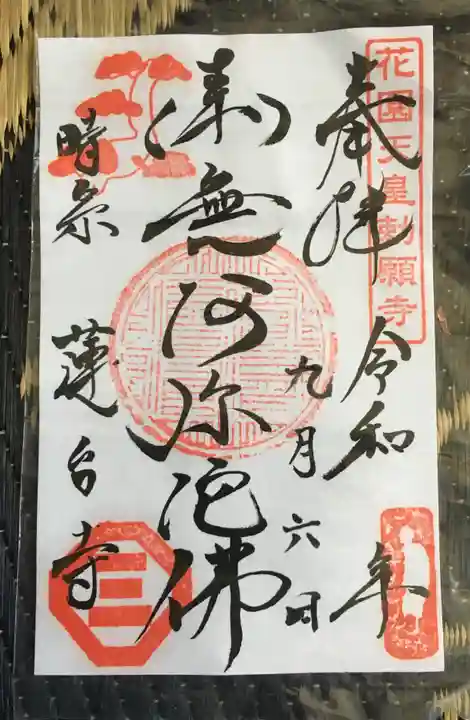 花園天皇勅願寺
奉拝
令和 年
九月六日
南無阿弥陀佛
時宗 蓮台寺